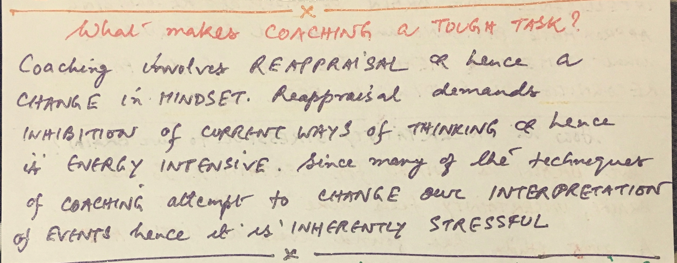 What makes COACHING a TOUGH TASK?
Coaching involves REAPPRAISAL & hence a
CHANGE in MINDSET. Reappraisal demands
INHIBITION of CURRENT WAYS of THINKING & hence
is ENERGY INTENSIVE. Since many of the techniques
of COACHING attempt to CHANGE our INTERPRETATION
of EVENTS hence it is INHERENTLY STRESSFUL